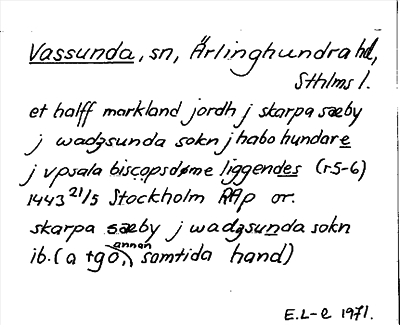 Vassunda, sn, Ärlinghundra hd,
Sthlms l.
et halff markland jordh j skarpa sæby
j wadzsunda sokn j habo hundare
j vpsala biscopsdøme liggendes (r5-6)
1443 21/5 Stockholm RAp or.
skarpa sæby j wadzsunda sokn
ib. (a tgo, annan samtida hand)
E.L-e 1971.